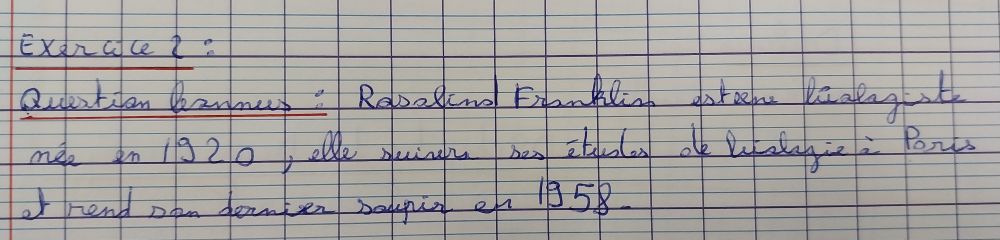 Exercice 2 :
Question bonnus : Rosalind Franklin est une biologiste
née en 1920, elle suivera ses études de biologie à Paris
et rend son dernier soupir en 1958.